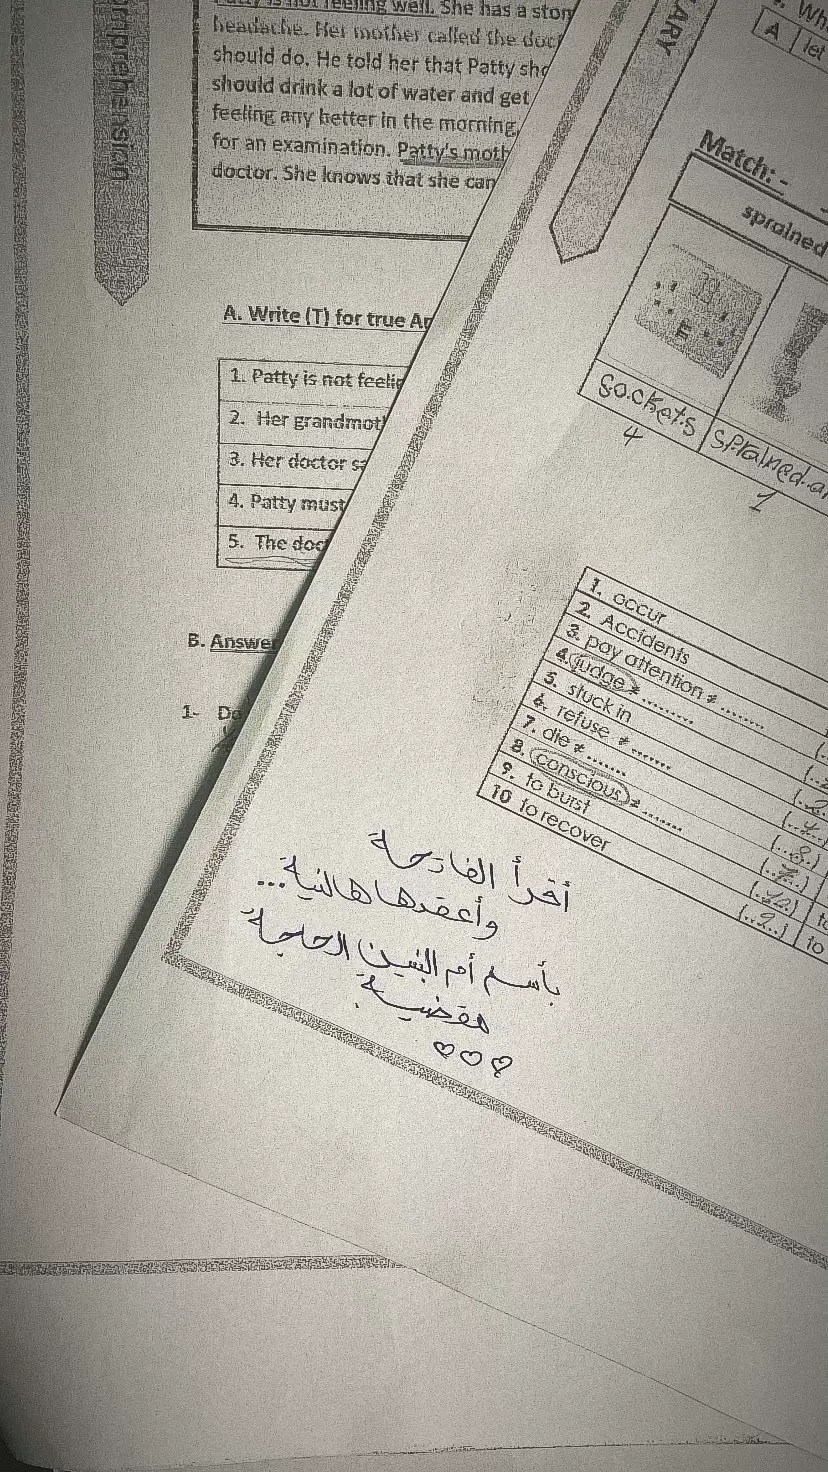 omprehension
Patty is not feeling well. She has a stom
headache. Her mother called the doct
should do. He told her that Patty sho
should drink a lot of water and get
feeling any better in the morning,
for an examination. Patty's moth
doctor. She knows that she can
A. Write (T) for true An
1. Patty is not feelin
2. Her grandmoth
3. Her doctor sa
4. Patty must
5. The doc
B. Answe
1- Do
LARY
Wh
A let
Match: -
sprained
Sockets sprained an
4 1
1. occur
2. Accidents
3. pay attention ≠ ........
4. judge ≠ .........
5. stuck in
6. refuse ≠ .......
7. die ≠ .......
8. conscious ≠ .......
9. to burst
10 to recover
(..8.)
(..7..)
(..10.) to
(..9..) to
أقرأ الفاتحة
وأعقدها هالنية...
بأسم أم البنين الحاجة
مقضية
♡♡♡